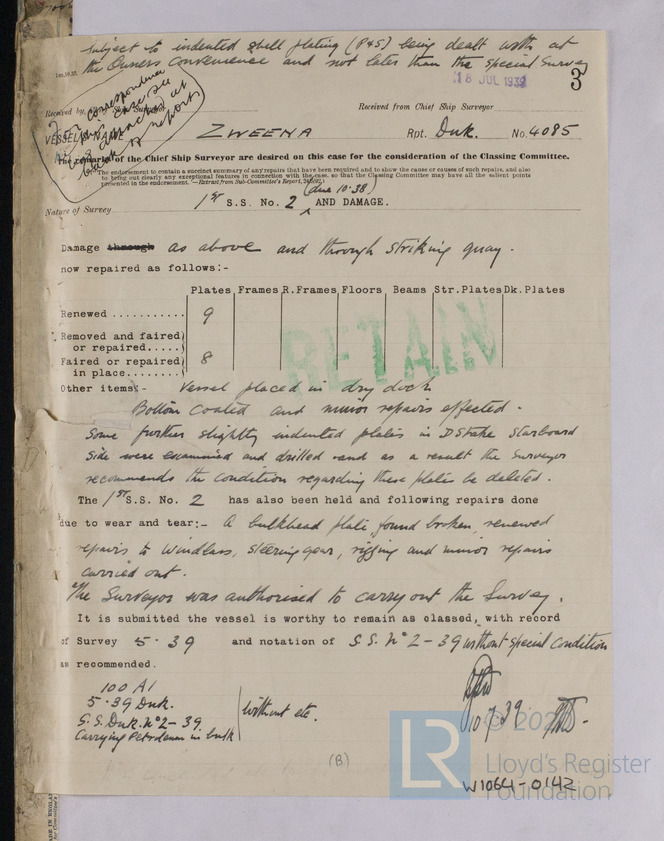 Subject to indented shell plating (P&S) being dealt with at
the Owners convenience and not later than the Special Survey
18 JUL 1939
3
For correspondence
in this case see
attached at
report
Received by Chief Ship Surveyor
Received from Chief Ship Surveyor
VESSEL'S NAME ZWEENA Rpt. Duk. No. 4085
The remarks of the Chief Ship Surveyor are desired on this case for the consideration of the Classing Committee.
The endorsement to contain a succinct summary of any repairs that have been required and to show the cause or causes of such repairs, and also
to bring out clearly any exceptional features in connection with the case, so that the Classing Committee may have all the salient points
presented in the endorsement.—Extract from Sub-Committee's Report,
(due 10.38)
Nature of Survey 1st S.S. No. 2 AND DAMAGE.
Damage through as above and through striking quay.
now repaired as follows:-
Plates Frames R.Frames Floors Beams Str.Plates Dk.Plates
Renewed ........... 9
Removed and faired
or repaired.....
Faired or repaired 8
in place........
RETAIN
Other items:- Vessel placed in dry dock
Bottom coated and minor repairs effected.
Some further slightly indented plates in D Strake Starboard
side were examined and drilled and as a result the Surveyor
recommends the condition regarding these plates be deleted.
The 1st S.S. No. 2 has also been held and following repairs done
due to wear and tear:- A bulkhead plate, found broken, renewed
repairs to windlass, steering gear, rigging and minor repairs
carried out.
The Surveyor was authorised to carry out the Survey.
It is submitted the vessel is worthy to remain as classed, with record
of Survey 5.39 and notation of S.S. No 2-39 without special condition
as recommended.
100 A1
5.39 Duk.
S.S. Duk. No 2-39
Carrying Petroleum in bulk
without etc.
10 7 39
(B)
LR
© 202
Lloyd's Register
Foundation
W1064-0142